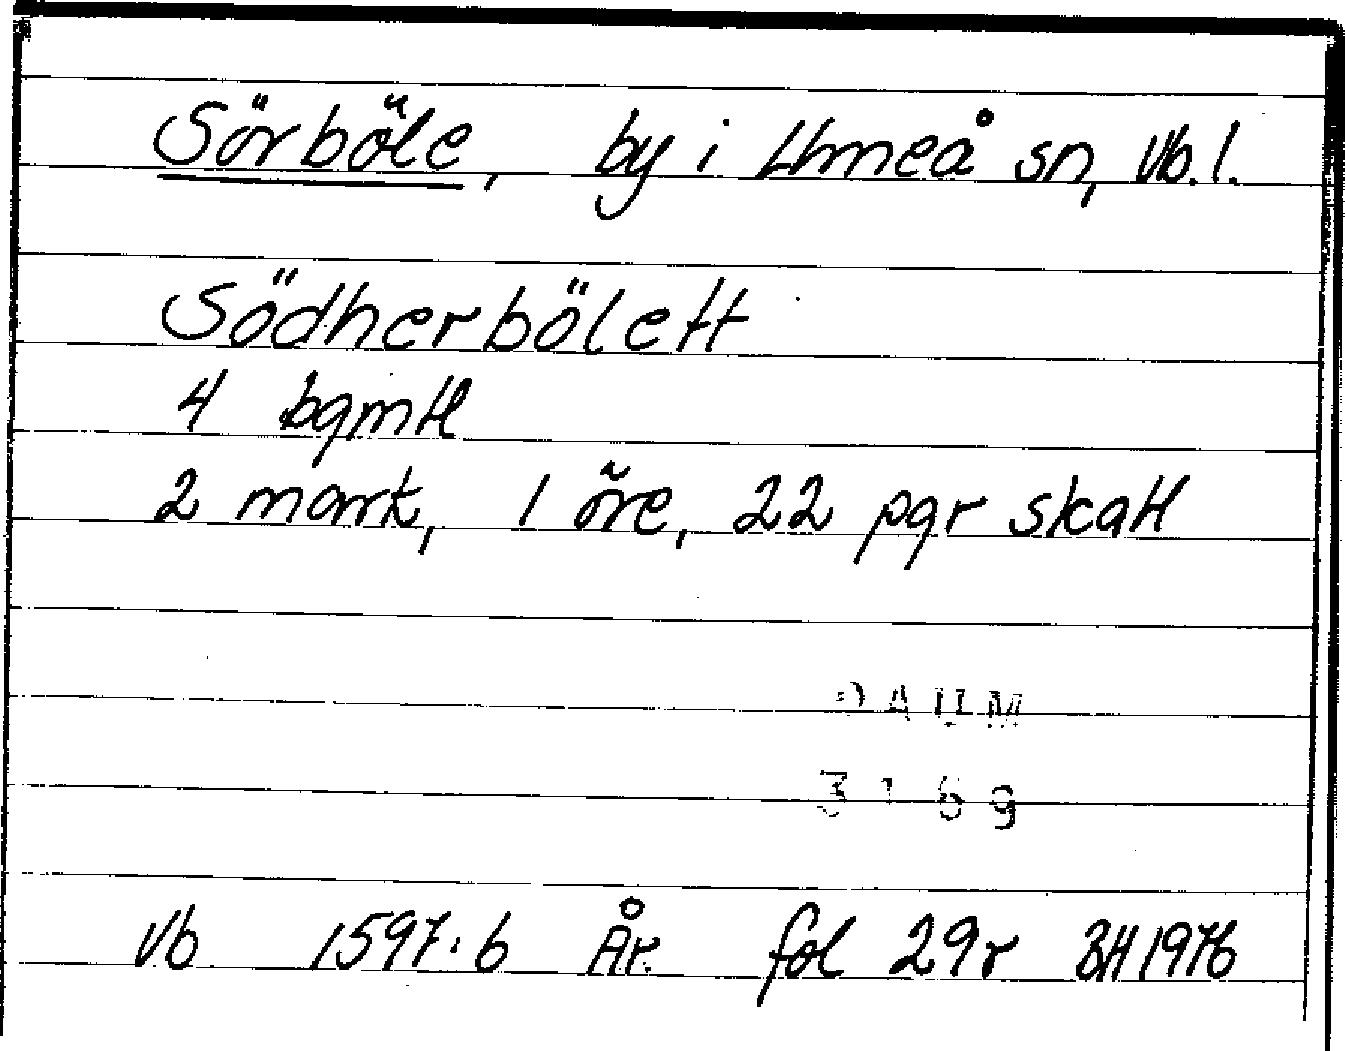 Sörböle, by i Umeå sn, Vb. l.
Södherbölett
4 bgmtl
2 mark, 1 öre, 22 pgr skatt
DAUM
3169
Vb 1597:6 År. fol 29r BH 1976